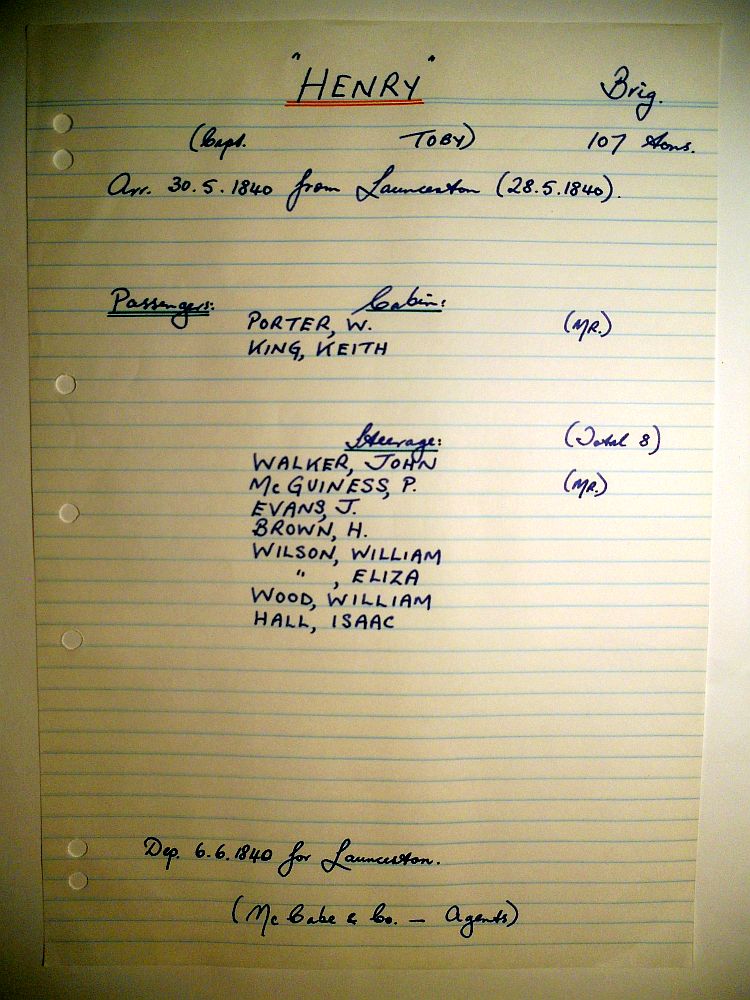 "HENRY" Brig.
(Capt. TOBY) 107 tons.
Arr. 30.5.1840 from Launceston (28.5.1840).
Passengers: Cabin:
PORTER, W. (MR.)
KING, KEITH
Steerage: (Total 8)
WALKER, JOHN
McGUINESS, P. (MR.)
EVANS, J.
BROWN, H.
WILSON, WILLIAM
" , ELIZA
WOOD, WILLIAM
HALL, ISAAC
Dep. 6.6.1840 for Launceston.
(McCabe & Co. — Agents)